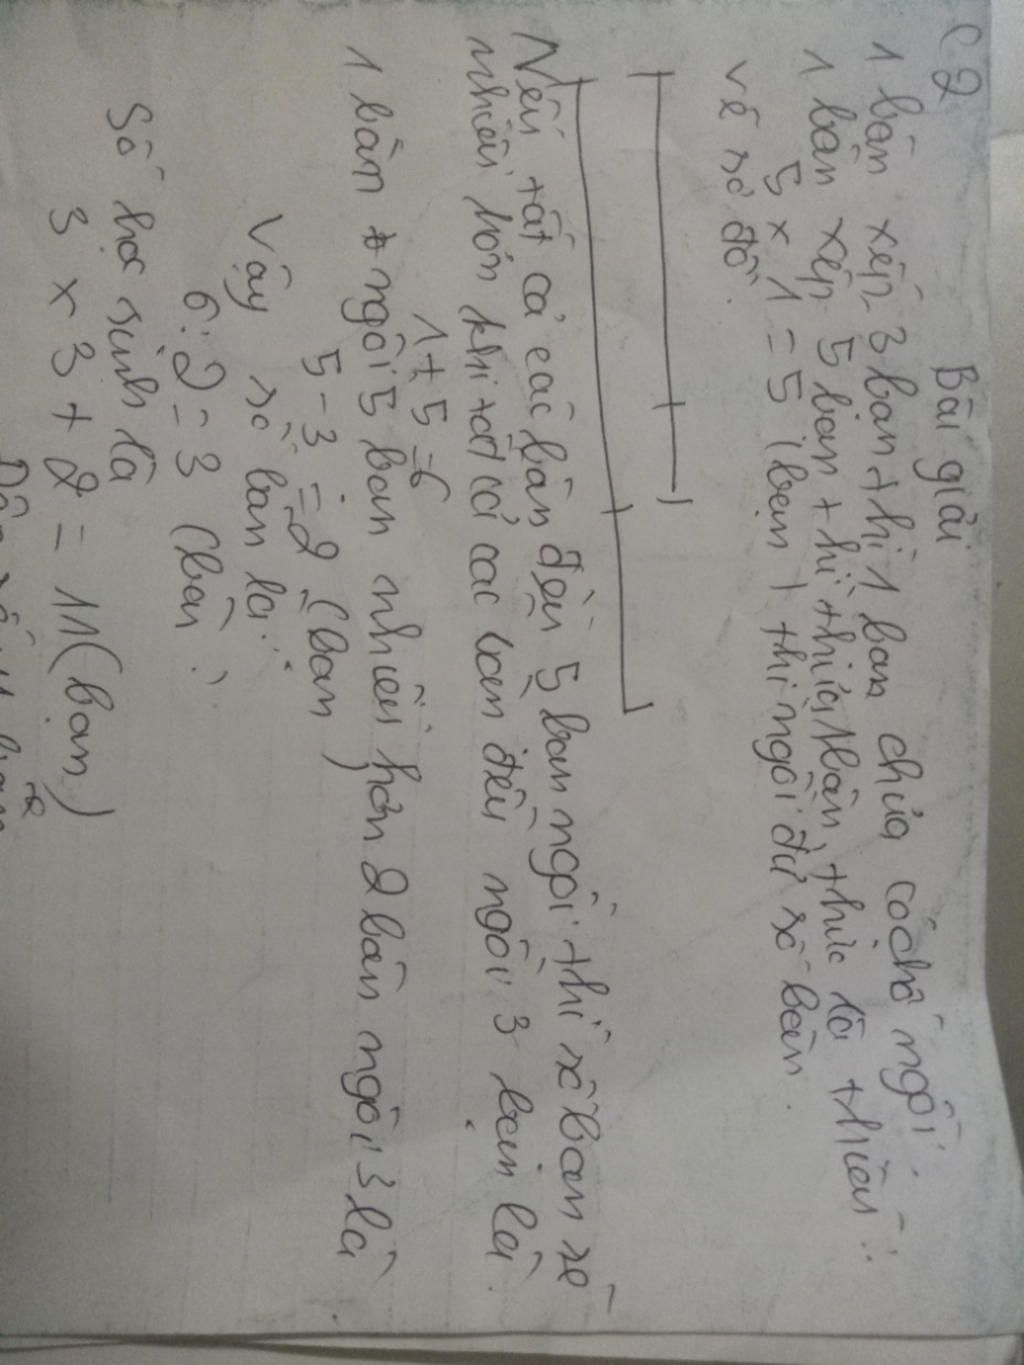 C2 Bài giải
1 bàn xếp 3 bạn thì 1 bạn chưa có chỗ ngồi.
1 bàn xếp 5 bạn thì thừa 1 bàn, tức là thiếu:
5 x 1 = 5 (bạn) thì ngồi đủ số bàn.
vẽ sơ đồ.
Nếu tất cả các bàn đều 5 bạn ngồi thì số bạn sẽ
nhiều hơn khi tất cả các bàn đều ngồi 3 bạn là.
1 + 5 = 6
1 bàn ngồi 5 bạn nhiều hơn 2 bàn ngồi 3 là
5 - 3 = 2 (bàn)
Vậy số bàn là:
6 : 2 = 3 (bàn)
Số học sinh là
3 x 3 + 2 = 11 (bạn)